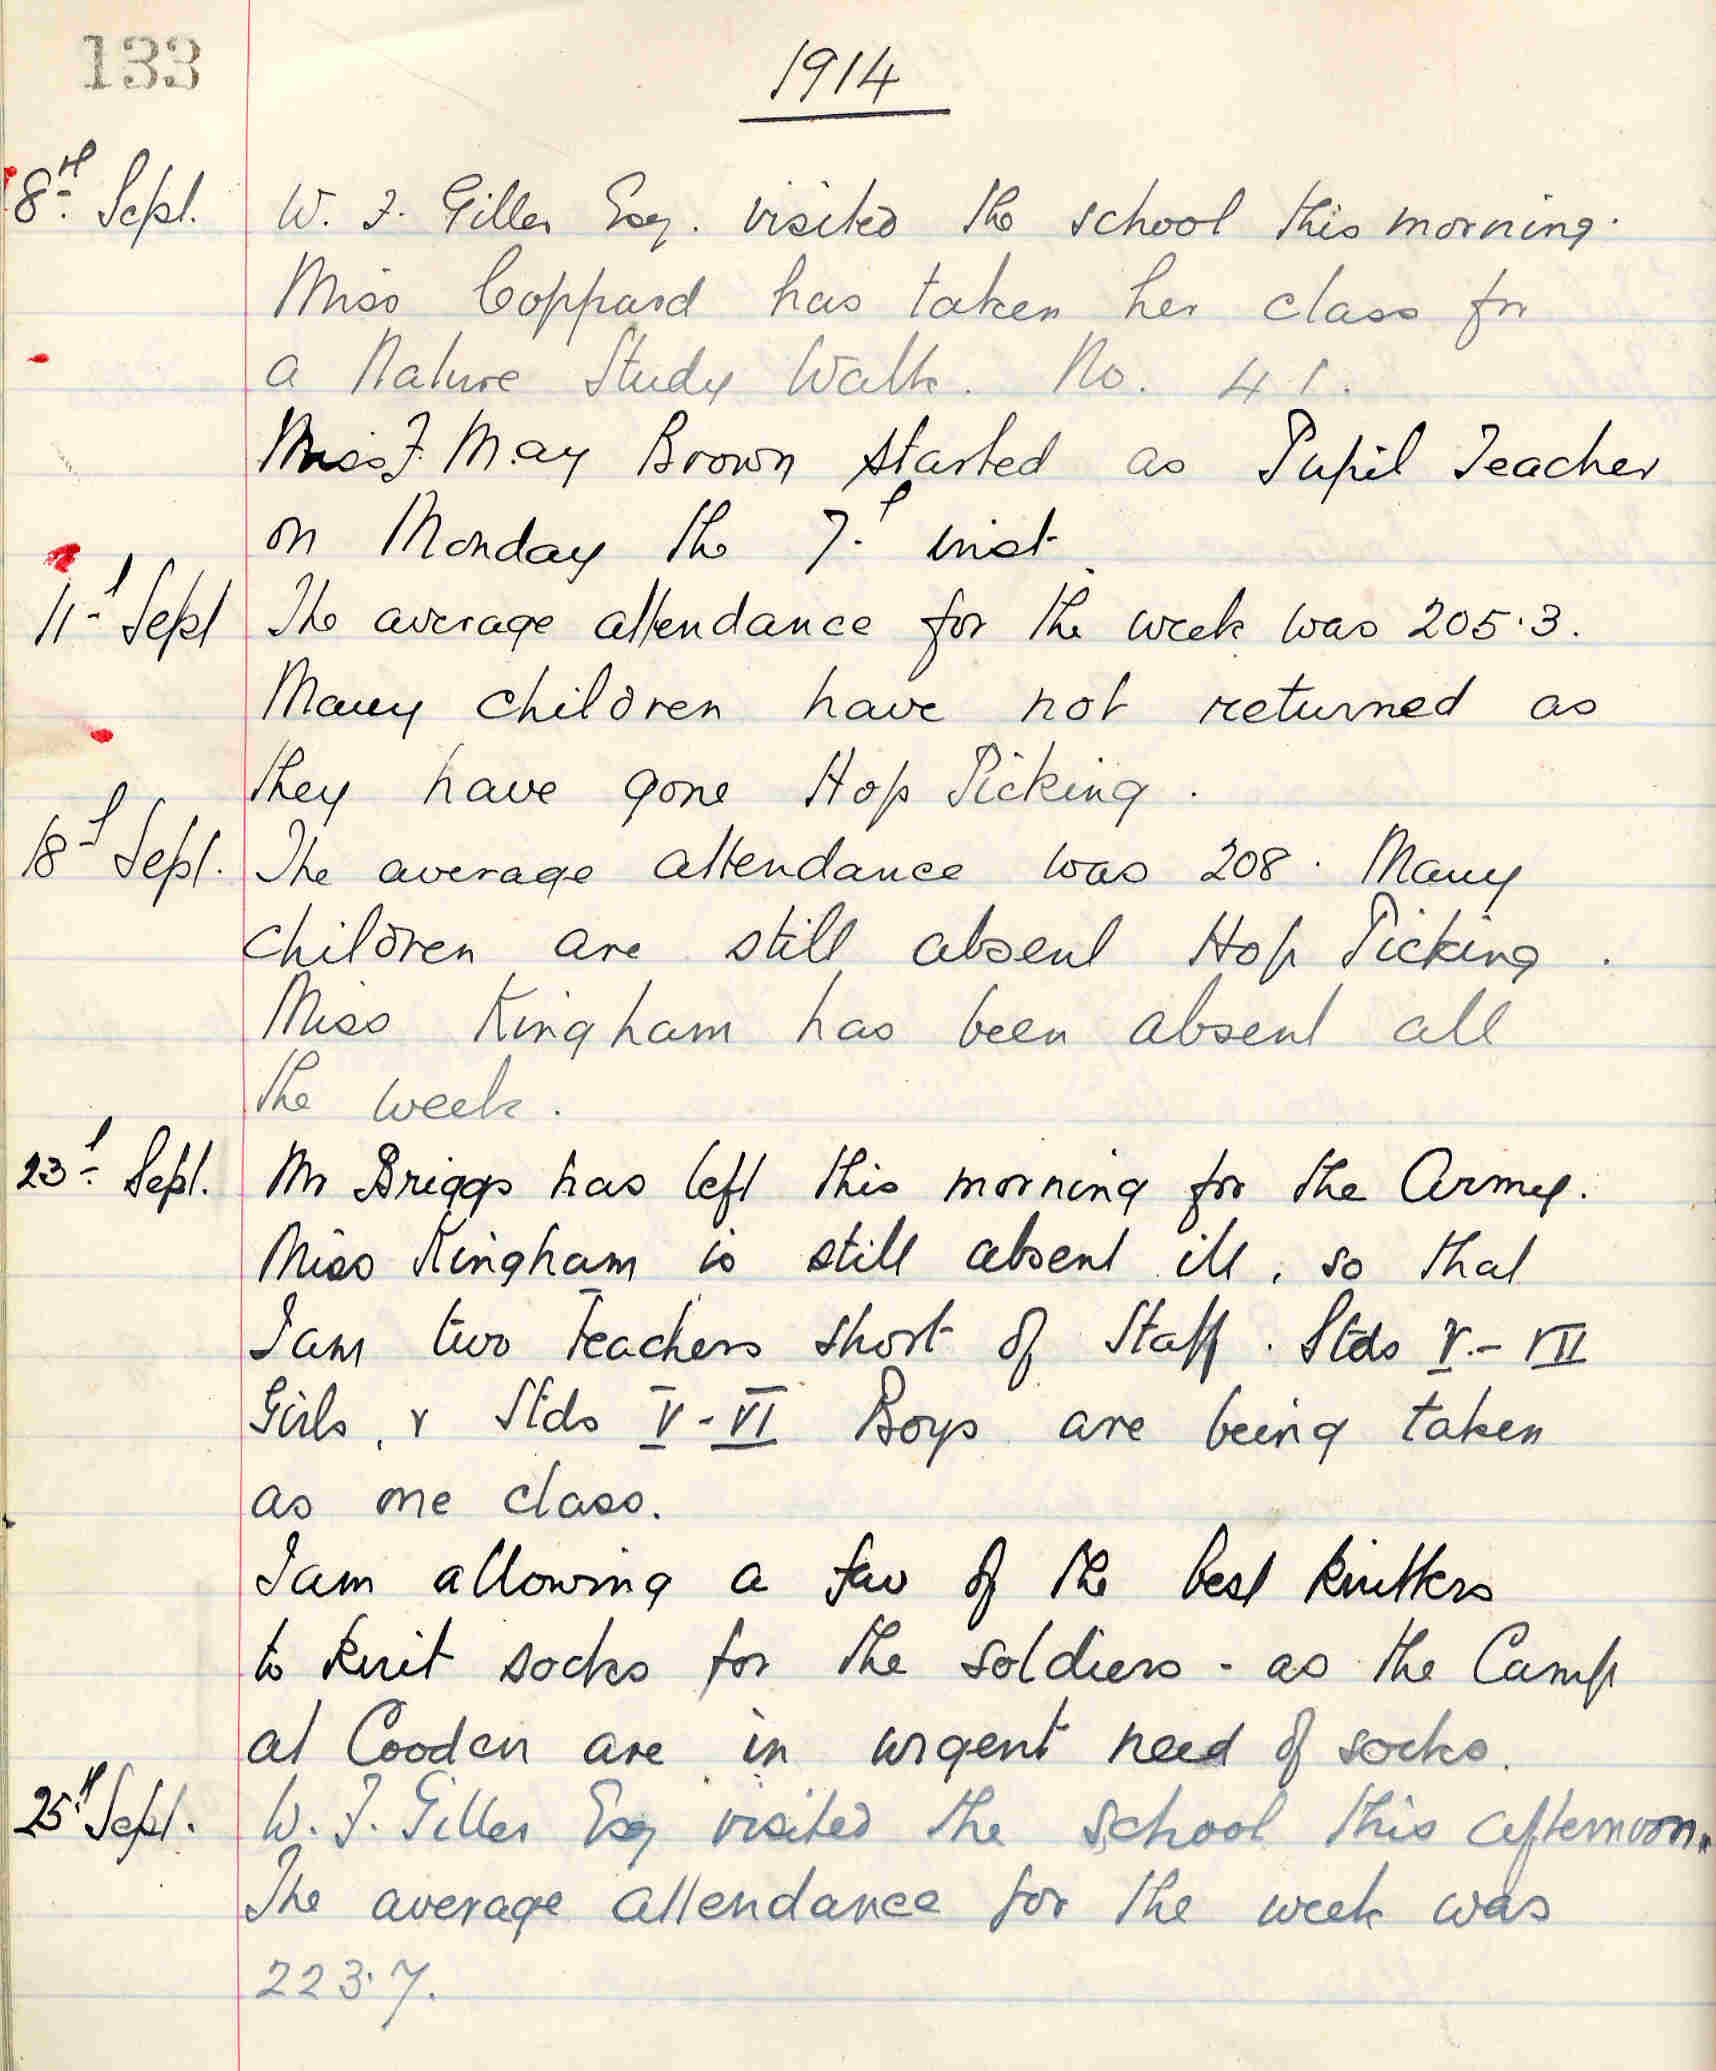 133
1914
8th Sept. W. F. Giller Esq. visited the school this morning.
Miss Coppard has taken her class for
a Nature Study Walk. No. 41.
Miss F. May Brown started as Pupil Teacher
on Monday the 7.t inst.
11t Sept The average attendance for the week was 205.3.
Many children have not returned as
they have gone Hop Picking.
18t Sept. The average attendance was 208. Many
children are still absent Hop Picking.
Miss Kingham has been absent all
the week.
23t Sept. Mr Briggs has left this morning for the Army.
Miss Kingham is still absent ill, so that
I am two Teachers short of Staff. Stds V.-VII
Girls, & Stds V-VI Boys are being taken
as one class.
I am allowing a few of the best knitters
to knit socks for the soldiers - as the Camp
at Cooden are in urgent need of socks.
25th Sept. W. F. Giller Esq visited the school this afternoon.
The average attendance for the week was
223.7.